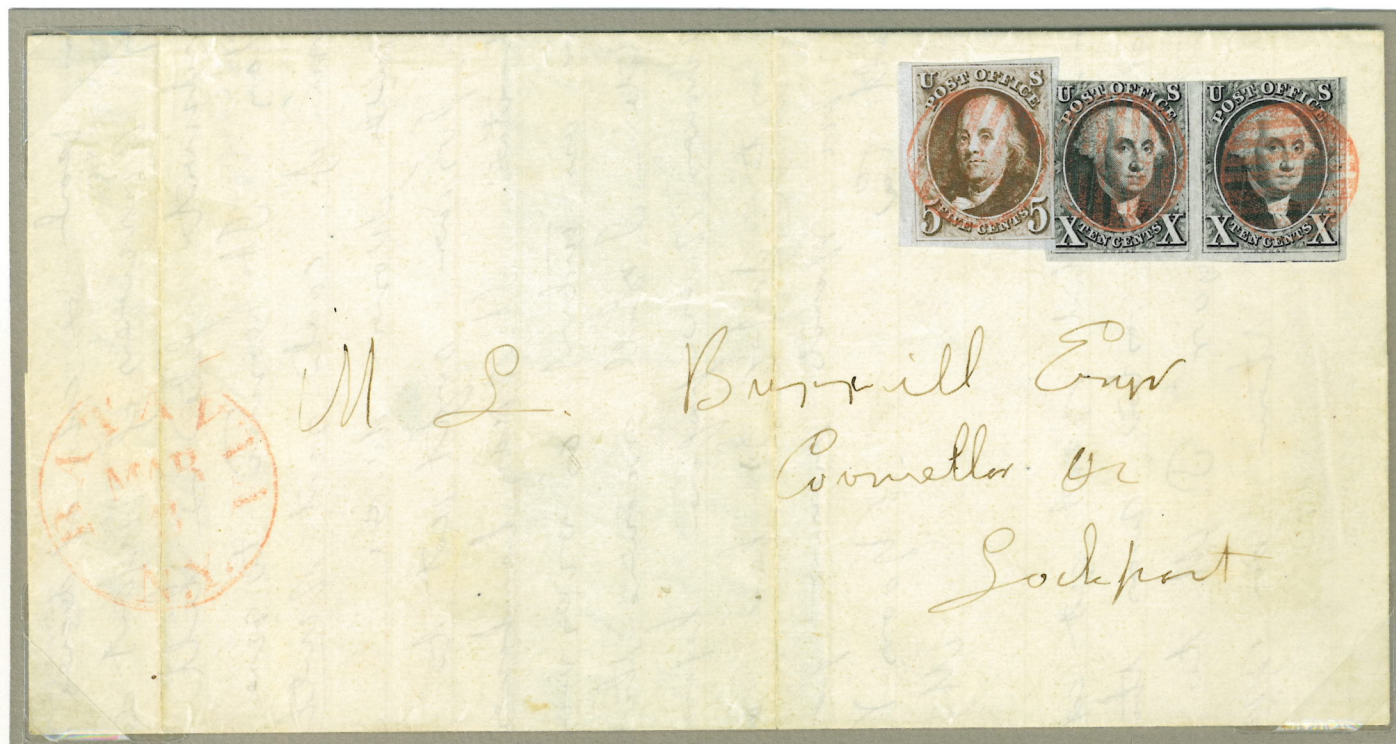 U S
POST OFFICE
5 FIVE CENTS 5
U S
POST OFFICE
X TEN CENTS X
U S
POST OFFICE
X TEN CENTS X
BATAVIA
MAR
N.Y.
M L. Burrill Esqr
Counsellor &c
Lockport